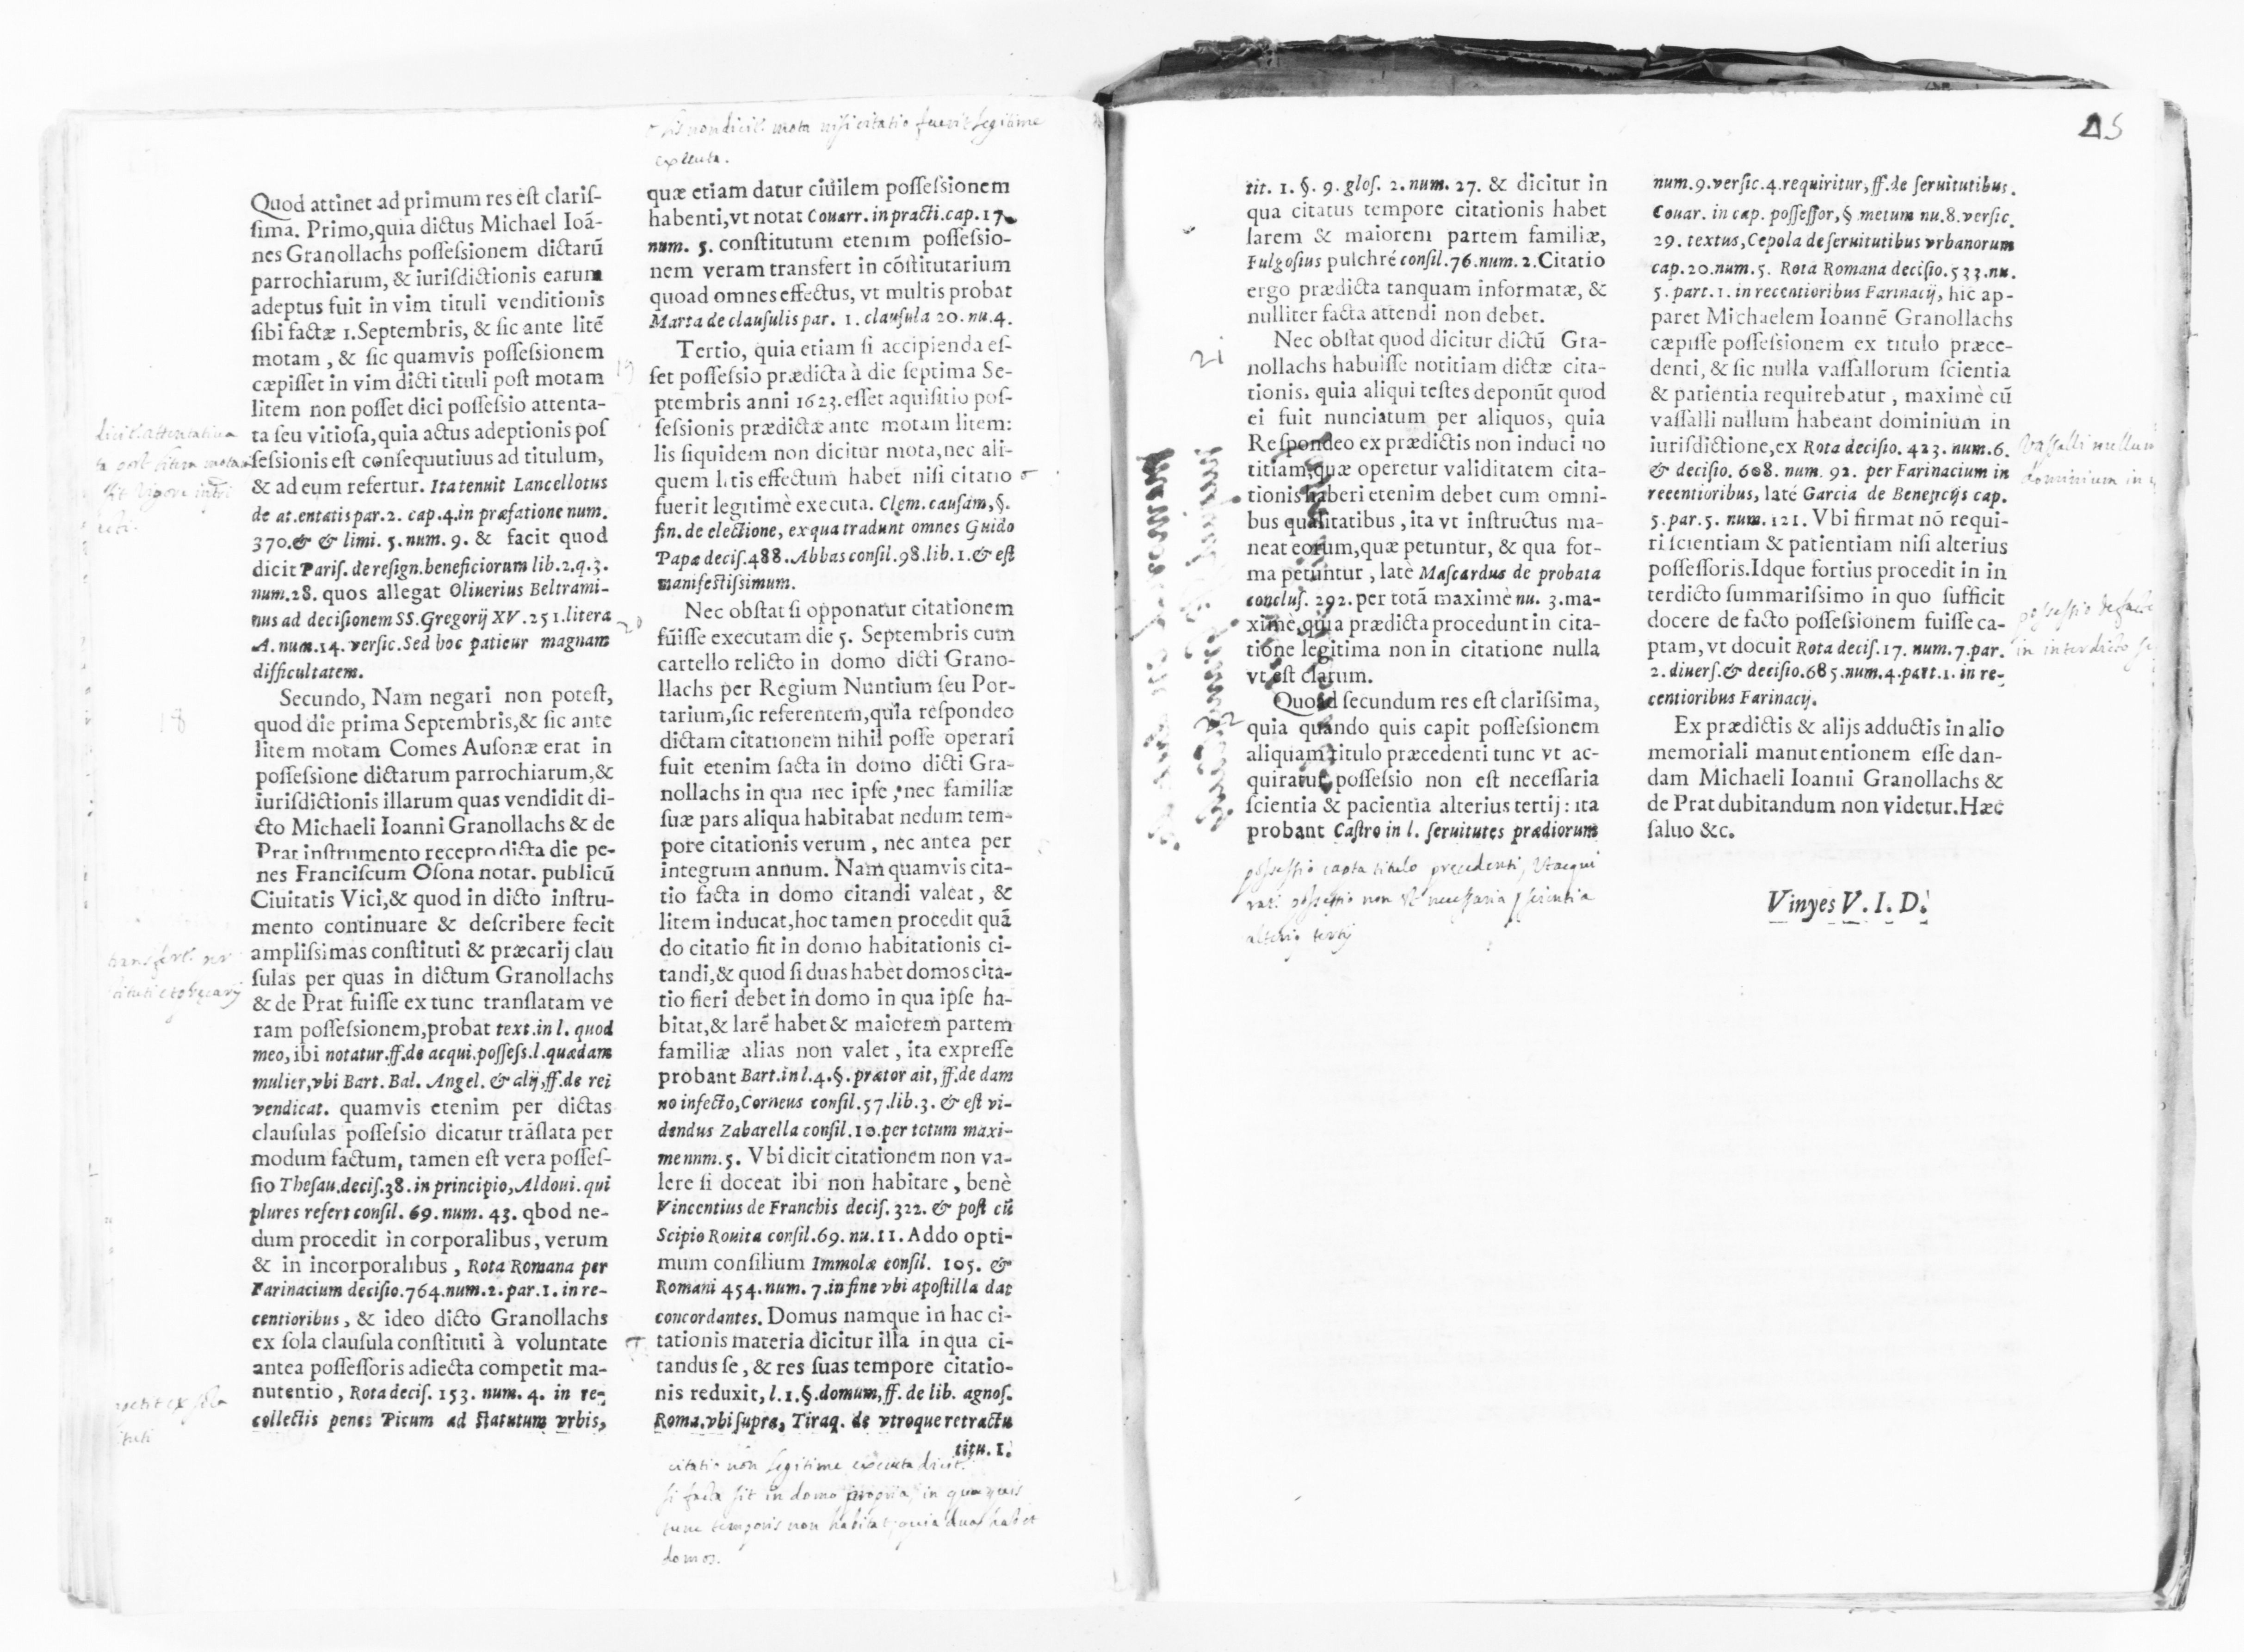 Quod attinet ad primum res est claris-
sima. Primo,quia dictus Michael Ioã-
nes Granollachs possessionem dictarũ
parrochiarum, & iurisdictionis earum
adeptus fuit in vim tituli venditionis
sibi factæ 1.Septembris, & sic ante litẽ
motam , & sic quamvis possessionem
cæpisset in vim dicti tituli post motam
litem non posset dici possessio attenta-
ta seu vitiosa,quia actus adeptionis pos
sessionis est consequutiuus ad titulum,
& ad eum refertur. Ita tenuit Lancellotus
de at.entatis par.2. cap.4.in præfatione num.
370.& & limi. 5.num. 9. & facit quod
dicit Paris. de resign.beneficiorum lib.2.q.3.
num.28. quos allegat Oliuerius Beltrami-
nus ad decisionem SS.Gregorij XV.251.litera
A. num.14. versic.Sed hoc patieur magnam
difficultatem.
Secundo, Nam negari non potest,
quod die prima Septembris,& sic ante
litem motam Comes Ausonæ erat in
possessione dictarum parrochiarum,&
iurisdictionis illarum quas vendidit di-
cto Michaeli Ioanni Granollachs & de
Prat instrumento recepto dicta die pe-
nes Franciscum Osona notar. publicũ
Ciuitatis Vici,& quod in dicto instru-
mento continuare & describere fecit
amplissimas constituti & præcarij clau
sulas per quas in dictum Granollachs
& de Prat fuisse ex tunc translatam ve
ram possessionem,probat text.in l. quod
meo, ibi notatur.ff.de acqui.possess.l.quædam
mulier,vbi Bart. Bal. Angel. & alij,ff.de rei
vendicat. quamvis etenim per dictas
clausulas possessio dicatur trãslata per
modum factum, tamen est vera posses-
sio Thesau.decis.38.in principio, Aldoui. qui
plures refert consil. 69. num. 43. qbod ne-
dum procedit in corporalibus, verum
& in incorporalibus , Rota Romana per
Farinacium decisio.764.num.2.par.1. in re-
centioribus, & ideo dicto Granollachs
ex sola clausula constituti à voluntate
antea possessoris adiecta competit ma-
nutentio , Rota decis. 153. num. 4. in re-
collectis penes Picum ad statutum vrbis,
mota nisi citatio fuerit legitime
executa.
quæ etiam datur ciuilem possessionem
habenti,vt notat Couarr. in practi.cap.17.
num. 5. constitutum etenim possessio-
nem veram transfert in cõstitutarium
quoad omnes effectus, vt multis probat
Marta de clausulis par. 1. clausula 20. nu.4.
Tertio, quia etiam si accipienda es-
set possessio prædicta à die septima Se-
ptembris anni 1623.esset aquisitio pos-
sessionis prædictæ ante motam litem:
lis siquidem non dicitur mota,nec ali-
quem litis effectum habet nisi citatio
fuerit legitimè executa. Clem. causam, §.
fin. de electione, ex qua tradunt omnes Guido
Papæ decis.488. Abbas consil.98.lib.1.& est
manifestissimum.
Nec obstat si opponatur citationem
fuisse executam die 5. Septembris cum
cartello relicto in domo dicti Grano-
llachs per Regium Nuntium seu Por-
tarium,sic referentem,quia respondeo
dictam citationem nihil posse operari
fuit etenim facta in domo dicti Gra-
nollachs in qua nec ipse, nec familiæ
suæ pars aliqua habitabat nedum tem-
pore citationis verum , nec antea per
integrum annum. Nam quamvis cita-
tio facta in domo citandi valeat, &
litem inducat,hoc tamen procedit quã
do citatio fit in domo habitationis ci-
tandi,& quod si duas habet domos cita-
tio fieri debet in domo in qua ipse ha-
bitat,& larẽ habet & maiorem partem
familiæ alias non valet , ita expresse
probant Bart.in l.4.§. prætor ait, ff.de dam
no infecto, Corneus consil.57.lib.3. & est vi-
dendus Zabarella consil.10.per totum maxi-
me nnm.5. Vbi dicit citationem non va-
lere si doceat ibi non habitare , benè
Vincentius de Franchis decis. 322. & post cũ
Scipio Rouita consil.69. nu.11. Addo opti-
mum consilium Immolæ consil. 105. &
Romani 454. num. 7.in fine vbi apostilla dat
concordantes. Domus namque in hac ci-
tationis materia dicitur illa in qua ci-
tandus se , & res suas tempore citatio-
nis reduxit, l.1.§.domum, ff. de lib. agnos.
Roma.vbi supra, Tiraq. de vtroque retractu
titu. 1.
citatio non legitime executa dicit.
si facta sit in domo propria, in qua quis
tunc temporis non habitat, quia duas habet
domos.
tit. 1. §. 9. glos. 2. num. 27. & dicitur in
qua citatus tempore citationis habet
larem & maiorem partem familiæ,
Fulgosius pulchré consil.76.num. 2.Citatio
ergo prædicta tanquam informatæ, &
nulliter facta attendi non debet.
21
Nec obstat quod dicitur dictũ Gra-
nollachs habuisse notitiam dictæ cita-
tionis, quia aliqui testes deponũt quod
ei fuit nunciatum per aliquos, quia
Respondeo ex prædictis non induci no
titiam,quæ operetur validitatem cita-
tionis haberi etenim debet cum omni-
bus qualitatibus , ita vt instructus ma-
neat eorum,quæ petuntur, & qua for-
ma petuntur , latè Mascardus de probata
conclus. 292. per totã maximè nu. 3.ma-
ximè,quia prædicta procedunt in cita-
tione legitima non in citatione nulla
vt est clarum.
Quoad secundum res est clarissima,
quia quando quis capit possessionem
aliquam titulo præcedenti tunc vt ac-
quiratur possessio non est necessaria
scientia & pacientia alterius tertij: ita
probant Castro in l. seruitutes prædiorum
possessio capta titulo precedenti, Vt acqui
rat. possessio non est necessaria scientia
alterius tertij
num.9.versic.4.requiritur, ff.de seruitutibus.
Couar. in cap. possessor, § metum nu.8.versic.
29. textus, Cepola de seruitutibus vrbanorum
cap.20.num.5. Rota Romana decisio.533.nu.
5.part.1. in recentioribus Farinacij, hic ap-
paret Michaelem Ioannẽ Granollachs
cæpisse possessionem ex titulo præce-
denti, & sic nulla vassallorum scientia
& patientia requirebatur , maximè cũ
vassalli nullum habeant dominium in
iurisdictione,ex Rota decisio. 423. num.6.
& decisio. 608. num. 92. per Farinacium in
recentioribus, laté Garcia de Beneficijs cap.
5.par.5. num.121. Vbi firmat nõ requi-
ri scientiam & patientiam nisi alterius
possessoris.Idque fortius procedit in in
terdicto summarissimo in quo sufficit
docere de facto possessionem fuisse ca-
ptam, vt docuit Rota decis.17. num.7.par.
2. diuers.& decisio.685.num.4.part.1. in re-
centioribus Farinacij.
Ex prædictis & alijs adductis in alio
memoriali manutentionem esse dan-
dam Michaeli Ioanni Granollachs &
de Prat dubitandum non videtur.Hæc
saluo &c.
Vinyes V. I. D.
Vassalli nullum
dominium in
possessio de facto
in interdicto